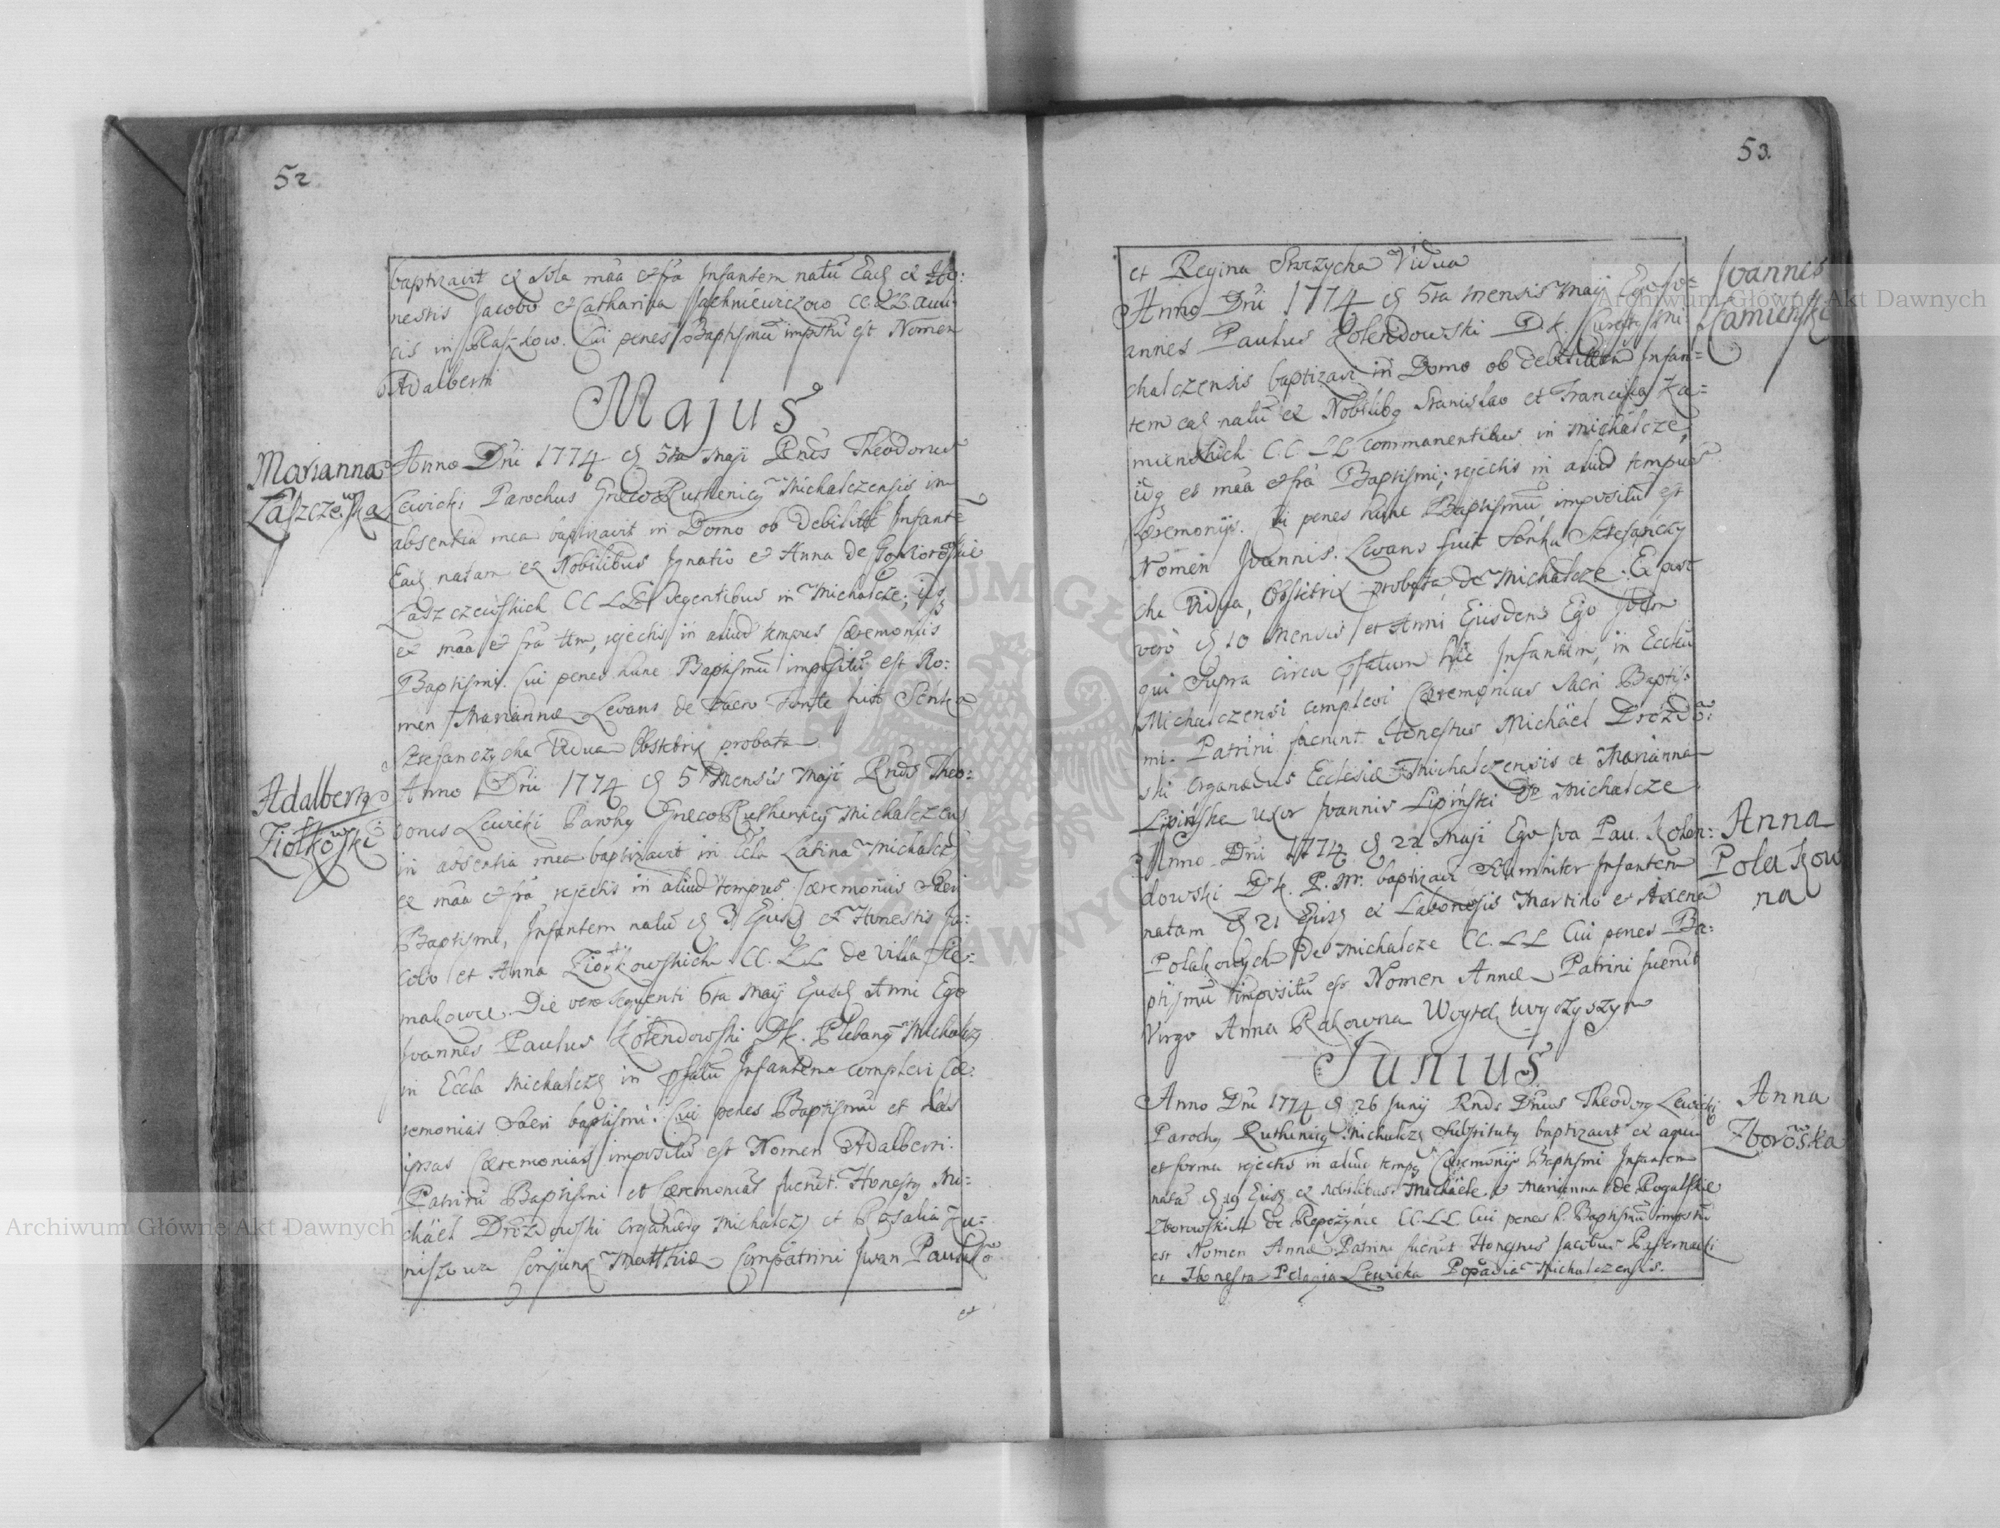 52
baptizavit ex sola maa et fra Infantem natū Eād ex Ho:
nestis Jacobo et Catharina Jachniewiczow CC. LL.
cis in Raszkow. Cui penes Baptismū impsitū est Nomen
Adalberti
Majus
Marianna
Łaszczewska
Anno Dni 1774 d 5ta Maji Rnds Theodorus
Lewicki Parochus GræcoRuthenicg Michalczensis in
absentia mea baptizavit in Domo ob Debilitt Infant=
Ead natam ex Nobilibus Ignatio et Anna de
CC LL Degentibus in Michalcze;
ex maa et fra tm, rejectis in aliud tempus Cæremoniis
Baptismi. Cui penes hunc Baptismū impositū est No:
men Mariannæ Levans de Sacro Fonte fuit Sēnka
Sztefanczycha Vidua Obstetrix probata
Adalbertg
Ziołkowski
Anno Dni 1774 d 5 Mensis Maji Rnds Theo:
dorus Lewicki Parohg GræcoRuthenicg Michalczens
in absentia mea baptizavit in Ecla Latina Michalcz
ex maa et fra rejectis in aliud tempus Cæremoniis Sacri
Baptismi, Infantem natū d 3 Ejusd ex Honestis Ja:
cobo et Anna Ziołkowskich CC. LL de Villa Sie:
makowce. Die vero sequenti 6ta Maij Ejusd Anni Ego
Ioannes Paulus Kolendowski Dk. Plebang Michalcz
in Eccla Michalczs in psatū Infantem complevi Cæ:
remonias Sacri baptismi. Cui penes Baptismū et has
ipsas Cæremonias impositū est Nomen Adalberti.
Patrini Baptismi et Cæremonias fuerut. Honestg Mi:
chäel Drozdowski Organedg Michalczs et Rosalia Ju:
niszowa Conjunx Matthiæ Compatrini Iwan
et
53.
et Regina Strczycha Vidua
Ioannes
Kamieński
Anno Dni 1774 d 5ta Mensis Maij Ego Jo=
annes Paulus Kolendowski Dk. Curatg Mi
chalczensis baptizavi in Domo ob debilittem Infan=
tem ead natū ex Nobilibg Stanislao et Francisca Ka=
mienskich CC. LL commanentibus in Michalcze,
idg ex maa et fra Baptismi; rejectis in aliud tempus
Cæremoniis. Cui penes hunc Baptismū impositū est
Nomen Ioannis. Levans fuit Senka Sztefanczy
cha Vidua, Obstetrix probata de Michalcze. Ex post
vero d 10 Mensis et Anni Ejusdem Ego Idem
qui supra circa psatum hic Infantem, in Ecclia
Michalczensi complevi Cæremonias Sacri Baptis:
mi. Patrini fuerunt Honestus Michäel Drozdo:
ski Organædus Ecclesiæ Michalczensis et Marianna
Lipińska uxor Ioannis Lipiński De Michalcze
Anna
Polakow
na
Anno Dni 1774 d 22 Maji Ego Ioa Pau. Kolen:
dowski Dk. P. Mr. baptizavi solemniter Infantem
natam d 21 Ejusd ex Laboriosis Martino et Axena
Polakowych de Michalcze CC. LL Cui penes Ba:
ptismū impositū est Nomen Annæ Patrini fuerut
Virgo Anna Rakowna Woytek
Junius
Anna
Zborowska
Anno Dni 1774 d 26 Junij Rnds Dnus Theodorg Lewicki
Parochg Ruthenicg Michalczs Substitutg baptizavit ex aqua
et forma rejectis in aliud tempg Cæremoniis Baptismi Infantem
natā d 19 Ejusd ex Nobilibus Michäele et Marianna de Rogalskie
Zborowskich de Repożyńce CC. LL. Cui penes h. Baptismū impositū
est Nomen Annæ. Patrini fuerut Honestus Jacobus Pasternacki
et Honesta Pelagia Lewicka Popadia Michalczensis.
Archiwum Główne Akt Dawnych
Archiwum Główne Akt Dawnych